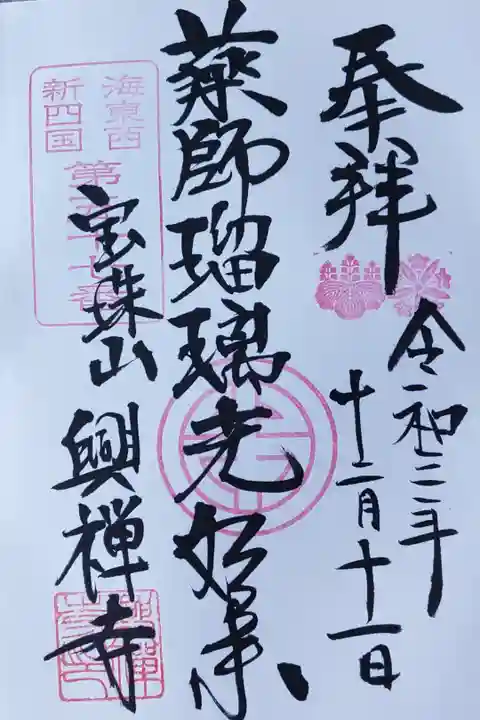 奉拝
令和三年
十二月十一日
薬師瑠璃光如来
海東西
新四国
第五十七番
宝珠山
興禅寺